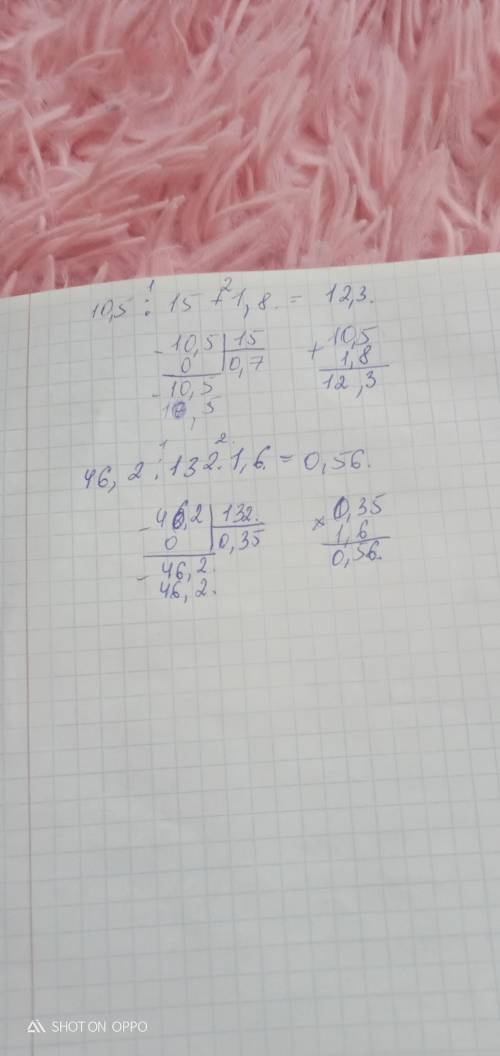 1 2
10,5 : 15 + 1,8. = 12,3.
- 10,5 | 15 + 10,5
0 0,7 1,8
- 10,5 12,3
10,5
1 2.
46,2 : 132 · 1,6. = 0,56.
- 46,2 | 132. × 0,35
0 0,35 1,6
- 46,2. 0,56.
46,2.
SHOT ON OPPO